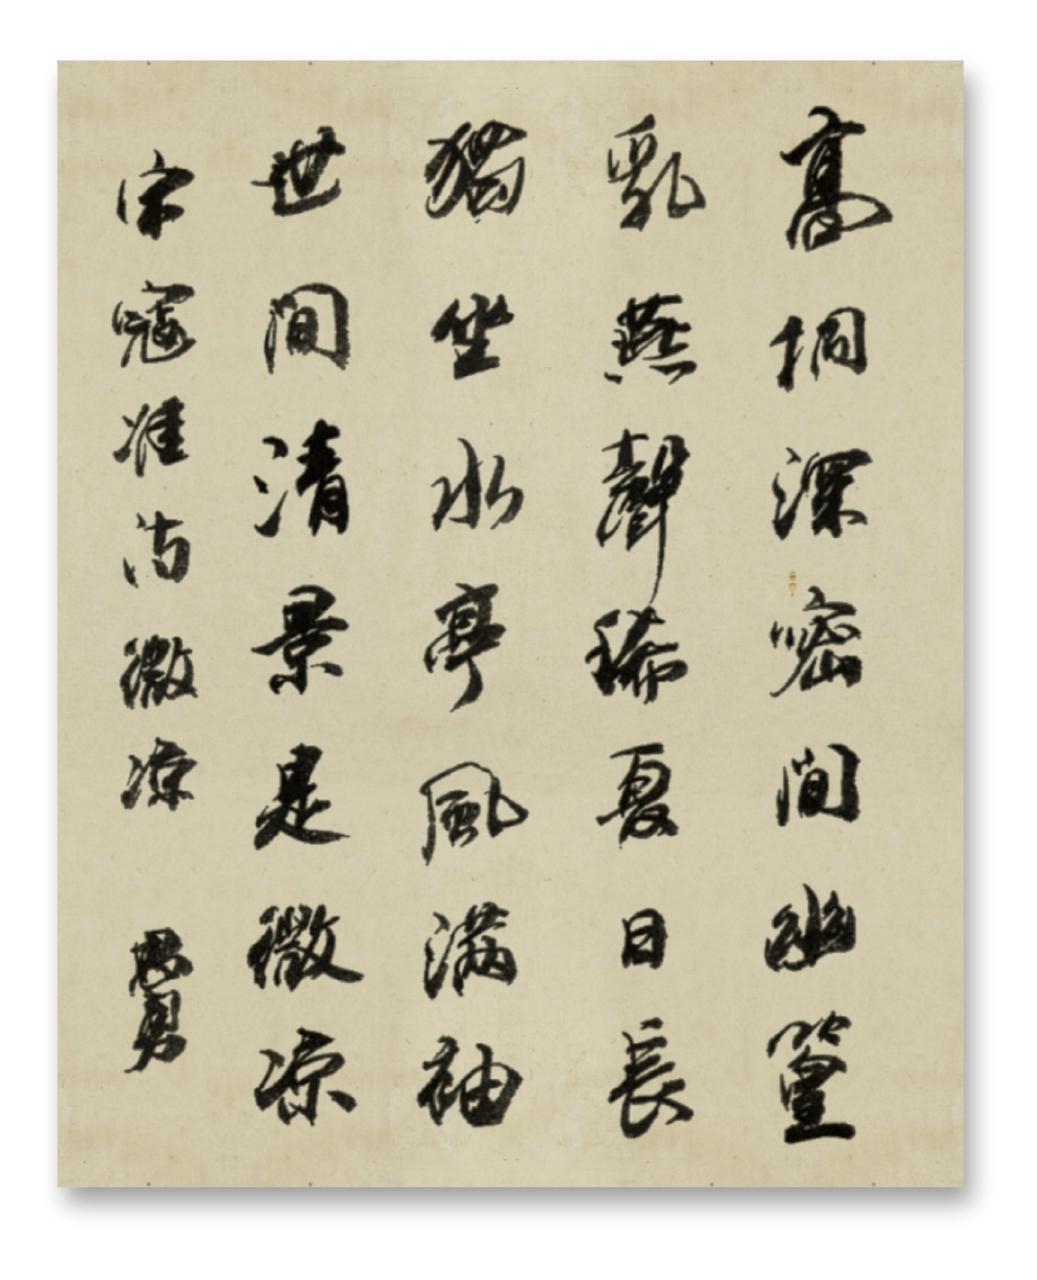 高桐深密间幽篁
乳燕聲稀夏日長
獨坐水亭風满袖
世间清景是微凉
宋寇准诗微凉